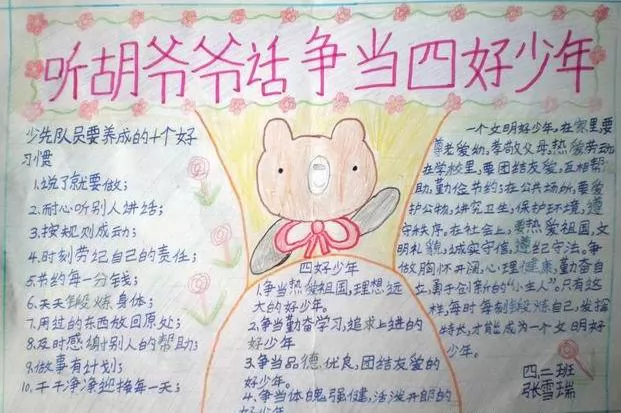 听胡爷爷话争当四好少年
少先队员要养成的十个好
习惯
1.说了就要做;
2.耐心听别人讲话;
3.按规则成动;
4.时刻劳记自己的责任;
5.节约每一分钱;
6.天天锻炼身体;
7.用过的东西放回原处;
8.及时感谢别人的帮助;
9.做事有计划;
10.干干净净迎接每一天;
四好少年
1.争当热爱祖国,理想远
大的好少年。
2.争当勤奋学习,追求上进的
好少年
3.争当品德优良,团结友爱的
好少年。
4.争当体魄强健,活泼开朗的
好少年
一个文明好少年,在家里,要
尊老爱幼,孝敬父母,热爱劳动
在学校里,要团结友爱,互相帮
助,勤俭节约;在公共场所,要爱
护公物,讲究卫生,保护环境,遵
守秩序,在社会上,要热爱祖国,文
明礼貌,诚实守信,遵纪守法。争
做胸怀开阔,心理健康,勤奋自
立,勇于创新的“小主人”。只有这
样,每时每刻锻炼自己,发挥
特长,才能成为一个文明好
少年。
四.二班
张雪瑞